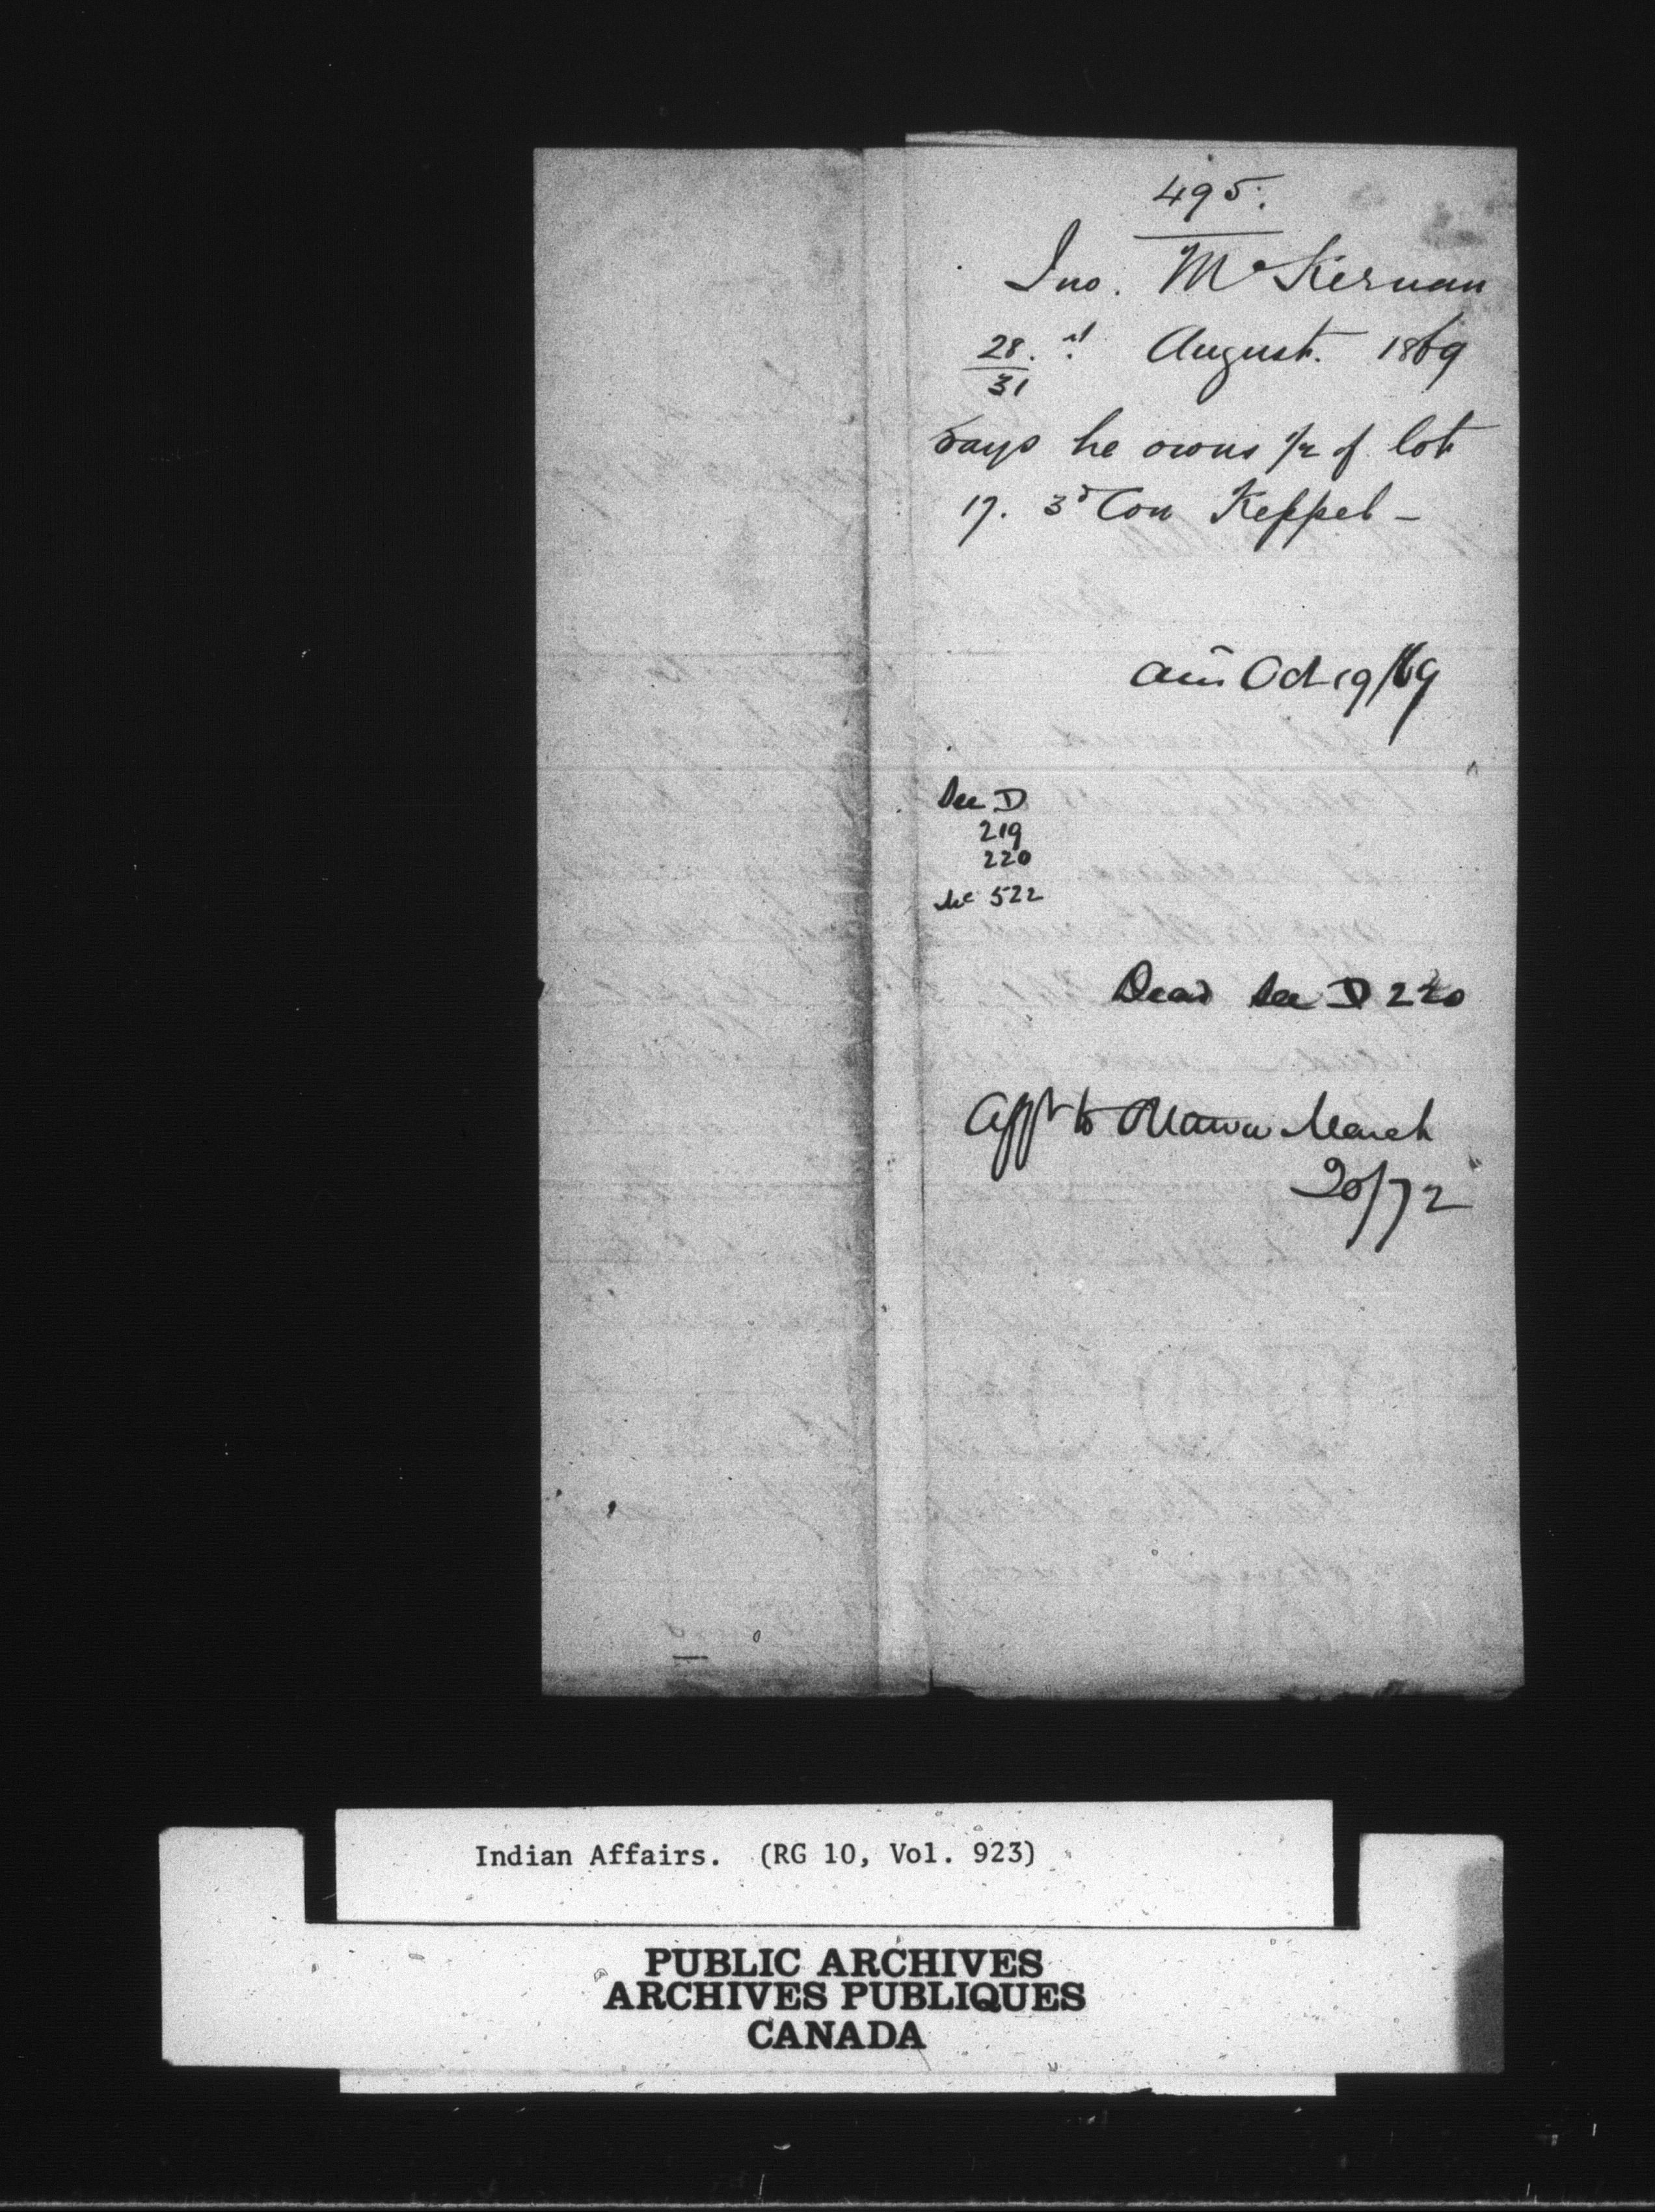 495.
Jno. McKernan
28. st August. 1869
31
says he owns 1/2 of lot
17. 3d Con Keppel -
Oct 19/69
See D
219
220
Mc 522
Dead See D 220
Appt to Ottawa March
20/72
Indian Affairs. (RG 10, Vol. 923)
PUBLIC ARCHIVES
ARCHIVES PUBLIQUES
CANADA